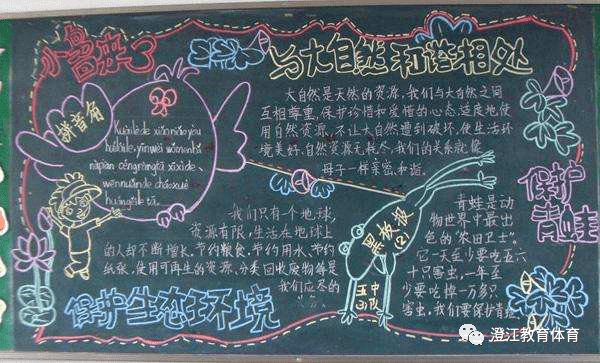 来了
与大自然和谐相处
拼音角
Kuàilède xiǎoniǎo yòu
huíláile, yīnwèi wǒmen bǎ
nàpiàn céngràngtā xīxìde、
wēnnuǎnde cháoxué
huángěile tā.
大自然是天然的资源,我们与大自然之间
互相尊重,保护珍惜和爱惜的心态,适度地使
用自然资源,不让大自然遭到破坏,使生活环
境美好,自然资源无耗尽,我们的关系就像
母子一样亲密、和谐。
我们只有一个地球,
资源有限,生活在地球上
的人却不断增长。节约粮食,节约用水、节约
纸张,使用可再生的资源,分类回收废物等是
我们应尽的
保护生态环境
黑板报
(2)
玉中
山队
保护
青蛙
青蛙是动
物世界中最出
色的“农田卫士”。
它一天至少要吃五六
十只害虫,一年至
少要吃掉一万多只
害虫,我们要保护青蛙
澄江教育体育